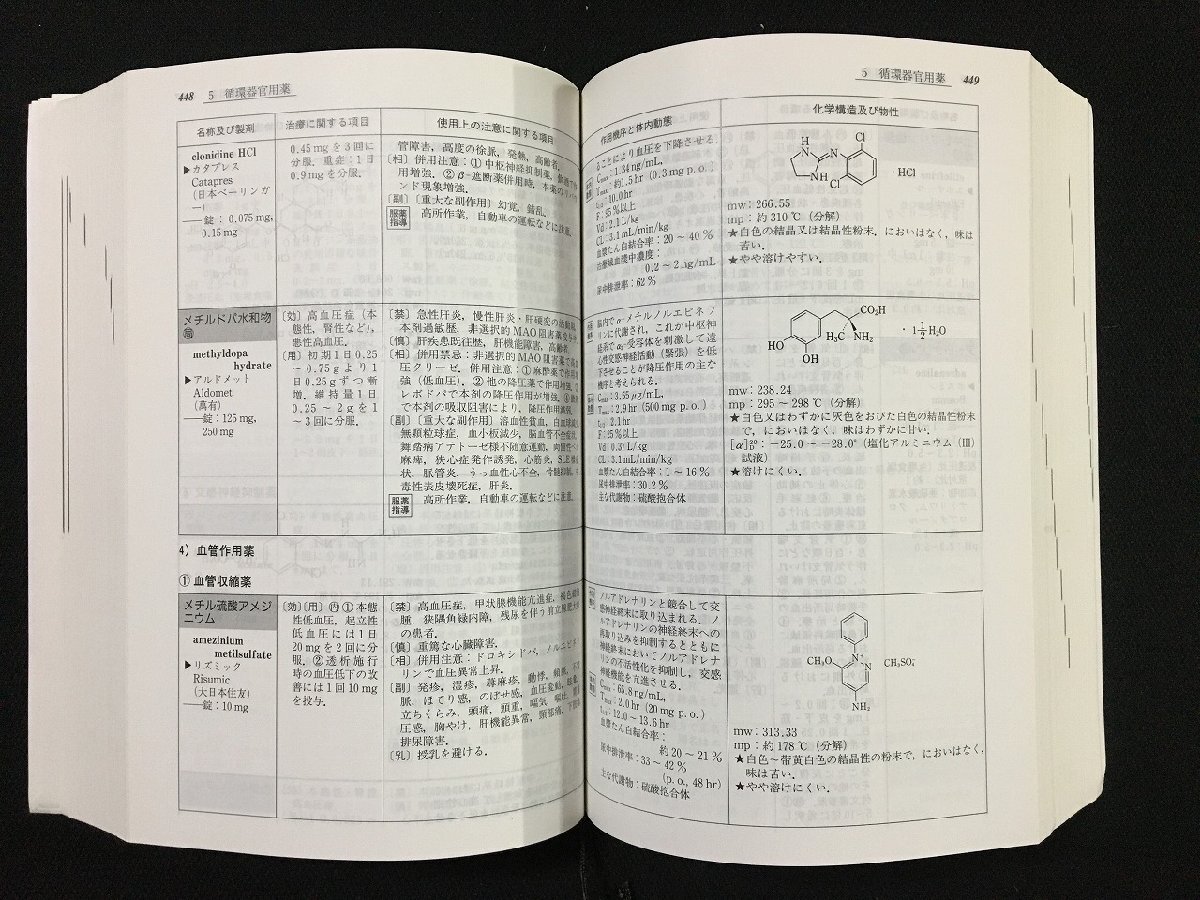 448 5 循環器官用薬
名称及び製剤
治療に関する項目
使用上の注意に関する項目
clonidine HCl
▶カタプレス
Catapres
(日本ベーリンガ
ー)
──錠：0.075 mg,
0.15 mg
0.45 mg を 3 回に
分服．重症：1 日
0.9 mg を分服．
管障害，高度の徐脈，発熱，高齢者．
〔相〕併用注意：①中枢神経抑制薬，
用増強．②β-遮断薬併用時，本薬のリバウ
ンド現象増強．
〔副〕〔重大な副作用〕幻覚，錯乱．
服薬指導 高所作業，自動車の運転などに注意．
メチルドパ水和物
局
methyldopa
hydrate
▶アルドメット
Aldomet
(萬有)
──錠：125 mg,
250 mg
〔効〕高血圧症（本
態性，腎性など），
悪性高血圧．
〔用〕初期 1 日 0.25
～0.75 g より 1
日 0.25 g ずつ漸
増．維持量 1 日
0.25 ～ 2 g を 1
～3 回に分服．
〔禁〕急性肝炎，慢性肝炎・肝硬変の活動期，
本剤過敏歴，非選択的 MAO 阻害薬
〔慎〕肝疾患既往歴，肝機能障害，高齢者．
〔相〕併用禁忌：非選択的 MAO 阻害薬で高血
圧クリーゼ．併用注意：①麻酔薬で作用増
強（低血圧）．②他の降圧薬で作用増強．③
レボドパで本剤の降圧作用が増強．④
で本剤の吸収阻害により，降圧作用減弱．
〔副〕〔重大な副作用〕溶血性貧血，白血球減少，
無顆粒球症，血小板減少，脳血管不全症状，
舞踏病アテトーゼ様不随意運動，両側性ベル
麻痺，狭心症発作誘発，心筋炎，SLE 様症
状，脈管炎，うっ血性心不全，骨髄抑制，中
毒性表皮壊死症，肝炎．
服薬指導 高所作業，自動車の運転などに注意．
4）血管作用薬
①血管収縮薬
メチル硫酸アメジ
ニウム
amezinium
metilsulfate
▶リズミック
Risumic
(大日本住友)
──錠：10 mg
〔効〕〔用〕内①本態
性低血圧，起立性
低血圧には 1 日
20 mg を 2 回に分
服．②透析施行
時の血圧低下の改
善には 1 回 10 mg
を投与．
〔禁〕高血圧症，甲状腺機能亢進症，褐色細胞
腫，狭隅角緑内障，残尿を伴う前立腺肥大
の患者．
〔慎〕重篤な心臓障害．
〔相〕併用注意：ドロキシドパ，ノルエピネフ
リンで血圧異常上昇．
〔副〕発疹，湿疹，蕁麻疹，動悸，頻脈，不整
脈，ほてり感，のぼせ感，血圧変動，
立ちくらみ，頭痛，頭重，嘔気，嘔吐，
圧感，胸やけ，肝機能異常，頸部痛，
排尿障害．
〔乳〕授乳を避ける．
5 循環器官用薬 449
作用機序と体内動態
化学構造及び物性
ることにより血圧を下降させる．
Cmax：1.34 ng/mL,
Tmax：約1.5 hr (0.3 mg p.o.)
t1/2：10.0 hr
F：95 %以上
Vd：2.1 L/kg
CL：3.1 mL/min/kg
血漿たん白結合率：20 ～ 40 %
治療域血漿中濃度：
0.2 ～ 2 ng/mL
尿中排泄率：62 %
H
N
N
NH
Cl
Cl
HCl
mw：266.55
mp：約 310 ℃（分解）
★白色の結晶又は結晶性粉末，においはなく，味は
苦い．
★やや溶けやすい．
脳内で α-メチルノルエピネフ
リンに代謝され，これが中枢神
経系で α₂-受容体を刺激して遠
心性交感神経活動（緊張）を低
下させることが降圧作用の主な
機序と考えられる．
Cmax：3.55 μg/mL,
Tmax：2.9 hr (500 mg p.o.)
t1/2：2.1 hr
F：25 %以上
CL：3.1 mL/min/kg
血漿たん白結合率：1 ～ 16 %
尿中排泄率：30.2 %
主な代謝物：硫酸抱合体
CO₂H
H₃C NH₂
HO
OH
・1½H₂O
mw：238.24
mp：295 ～ 298 ℃（分解）
★白色又はわずかに灰色をおびた白色の結晶性粉末
で，においはなく，味はわずかに甘い．
[α]²⁰D：−25.0 ～ −28.0°（塩化アルミニウム（Ⅲ）
試液）
★溶けにくい．
ノルアドレナリンと競合して交
感神経終末に取り込まれる．ノ
ルアドレナリンの神経終末への
再取り込みを抑制するとともに
神経終末においてノルアドレナ
リンの不活性化を抑制し，交感
神経機能を亢進させる．
Cmax：65.8 ng/mL,
Tmax：2.0 hr (20 mg p.o.)
t1/2：12.0 ～ 13.6 hr
血漿たん白結合率：
約 20 ～ 21 %
尿中排泄率：33 ～ 42 %
(p.o., 48 hr)
主な代謝物：硫酸抱合体
CH₃O
N⁺
N
NH₂
CH₃SO₄⁻
mw：313.33
mp：約 178 ℃（分解）
★白色～帯黄白色の結晶性の粉末で，においはなく，
味は苦い．
★やや溶けにくい．